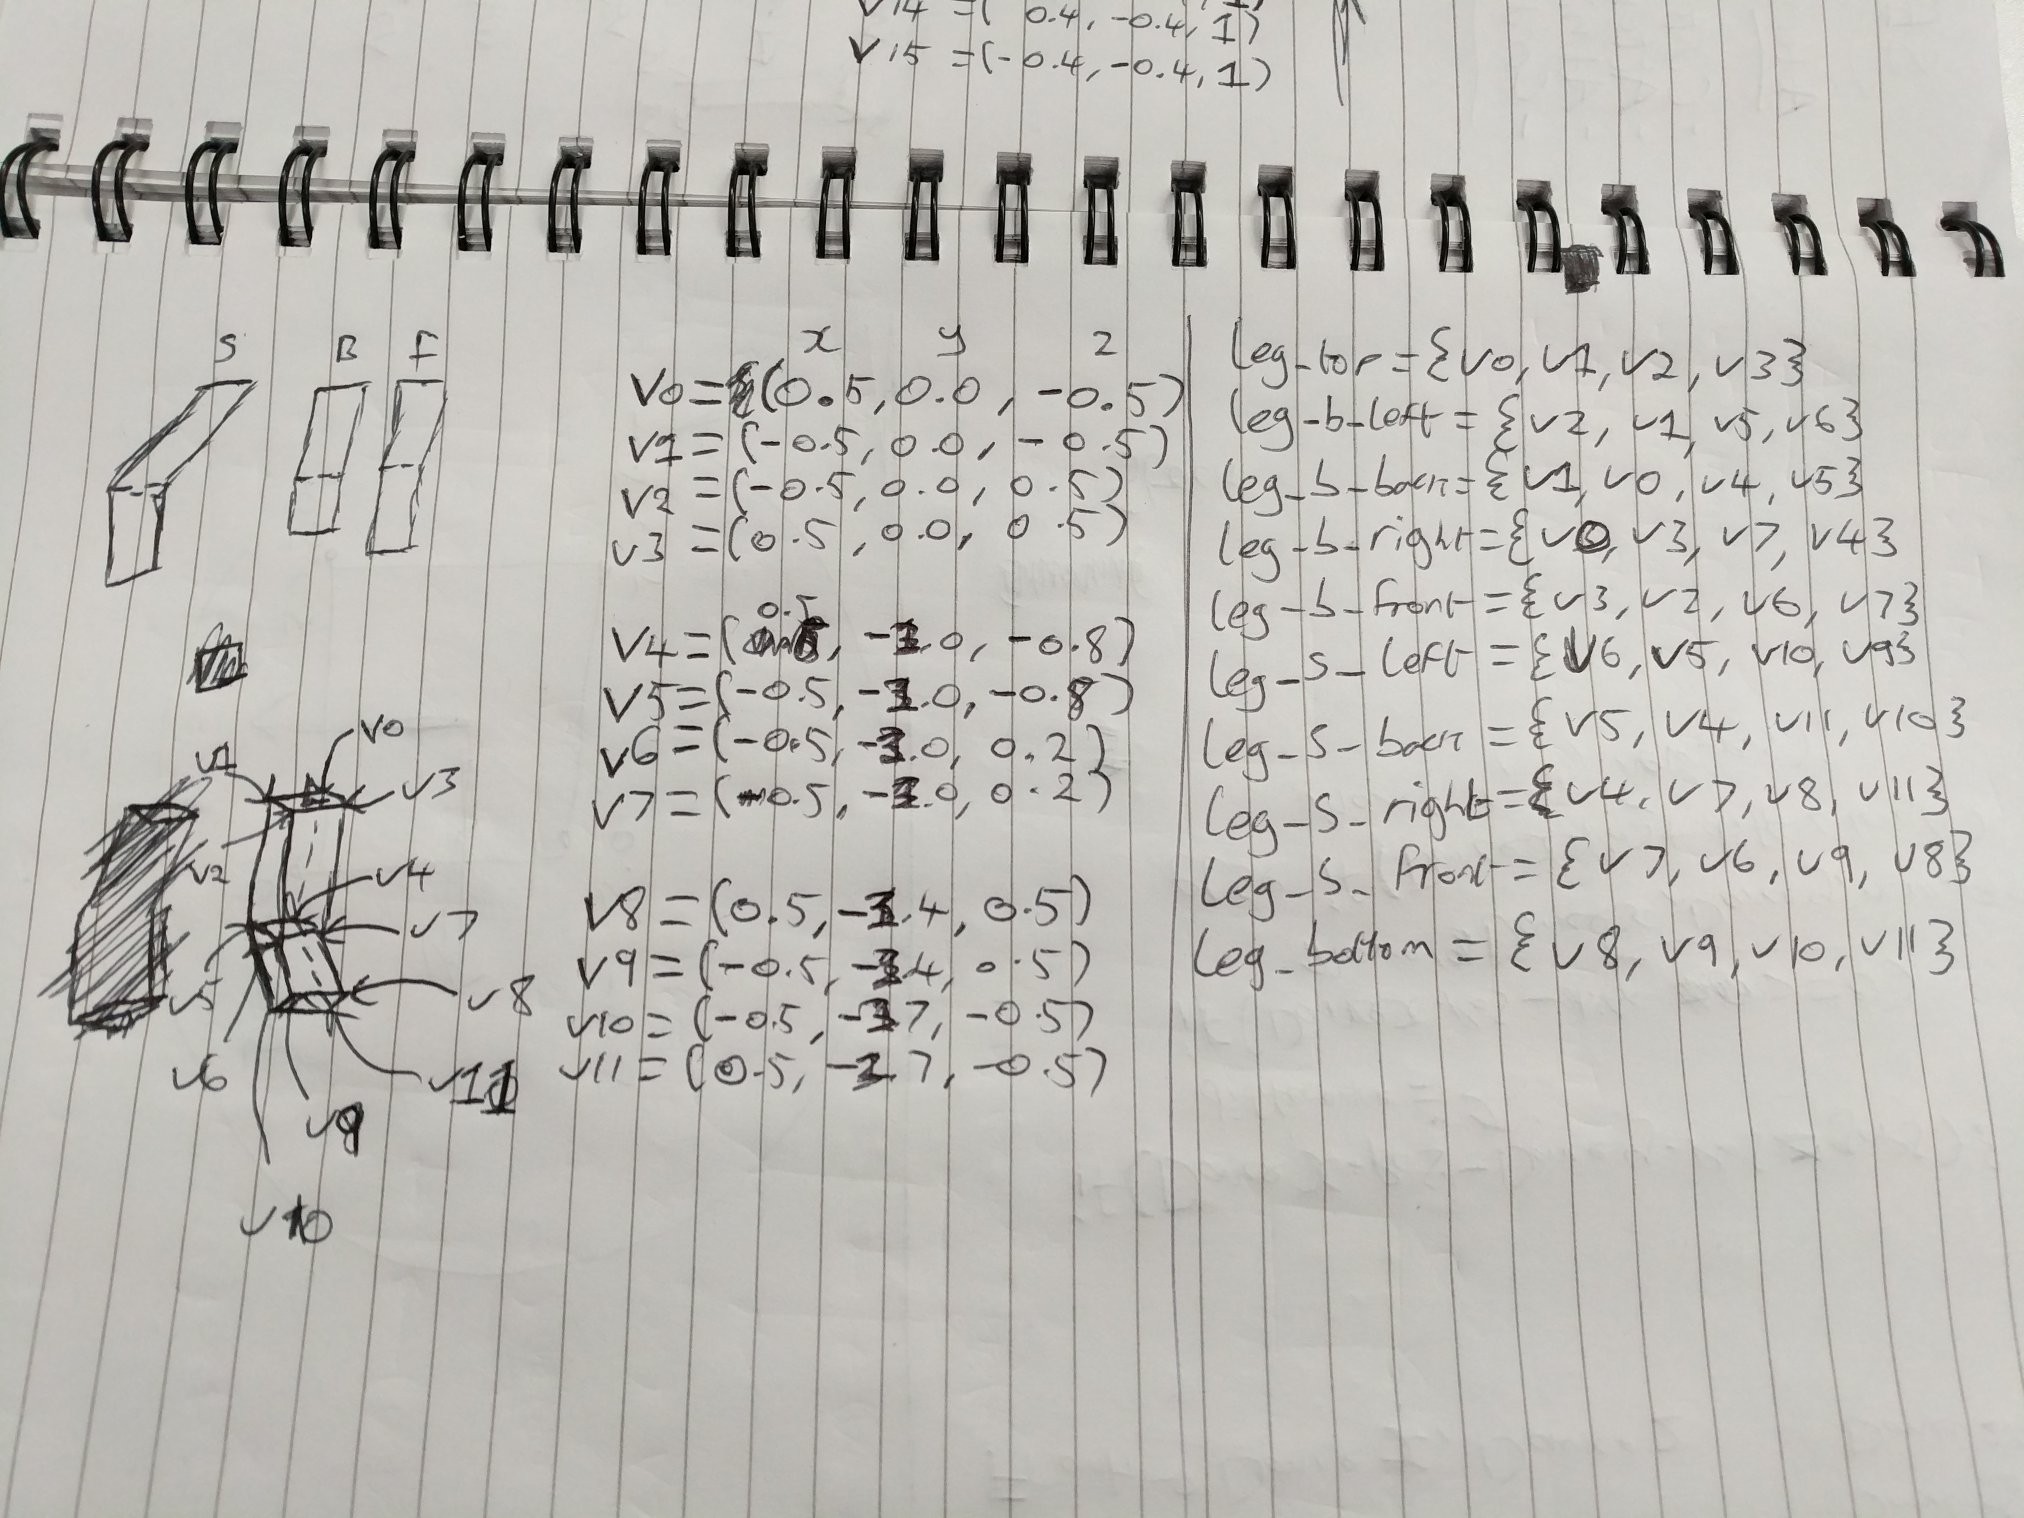 V14 = ( 0.4, -0.4, 1)
V15 = (-0.4, -0.4, 1)
S B F
x y z
V0 = (0.5, 0.0, -0.5)
V1 = (-0.5, 0.0, -0.5)
V2 = (-0.5, 0.0, 0.5)
V3 = (0.5, 0.0, 0.5)
0.5
V4 = ( , .0, -0.8)
V5 = (-0.5, .0, -0.8)
V6 = (-0.5, .0, 0.2)
V7 = (0.5, .0, 0.2)
V8 = (0.5, .4, 0.5)
V9 = (-0.5, .4, 0.5)
V10 = (-0.5, 7, -0.5)
V11 = (0.5, .7, -0.5)
leg_top = {v0, v1, v2, v3}
leg_b_left = {v2, v1, v5, v6}
leg_b_back = {v1, v0, v4, v5}
leg_b_right = {v0, v3, v7, v4}
leg_b_front = {v3, v2, v6, v7}
leg_s_left = {v6, v5, v10, v9}
leg_s_back = {v5, v4, v11, v10}
leg_s_right = {v4, v7, v8, v11}
leg_s_front = {v7, v6, v9, v8}
leg_bottom = {v8, v9, v10, v11}
v0
v1
v3
v2
v4
v7
v5
v8
v6
v11
v9
v10